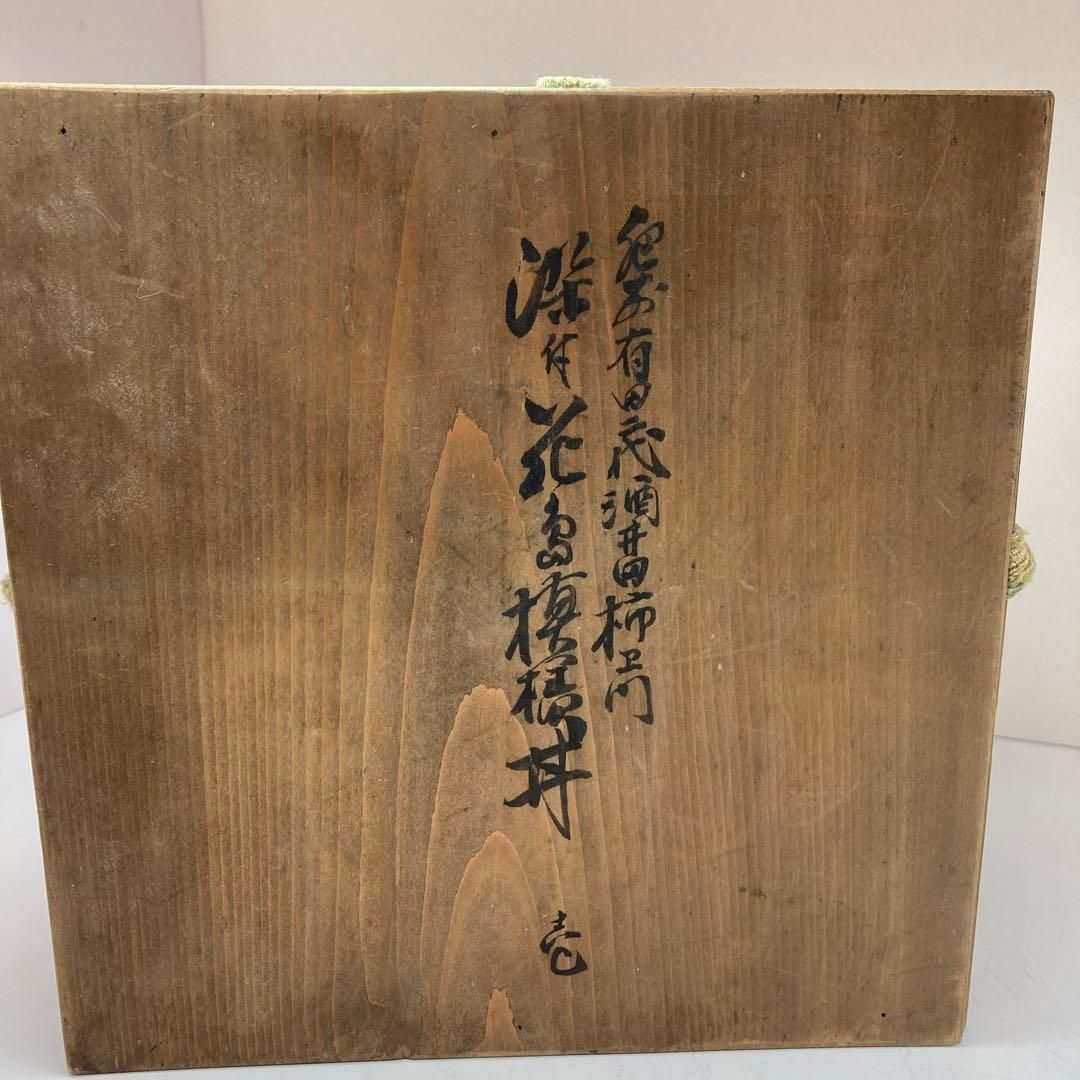 肥前有田 酒井田柿右衛門
染付花鳥模様丼 壱